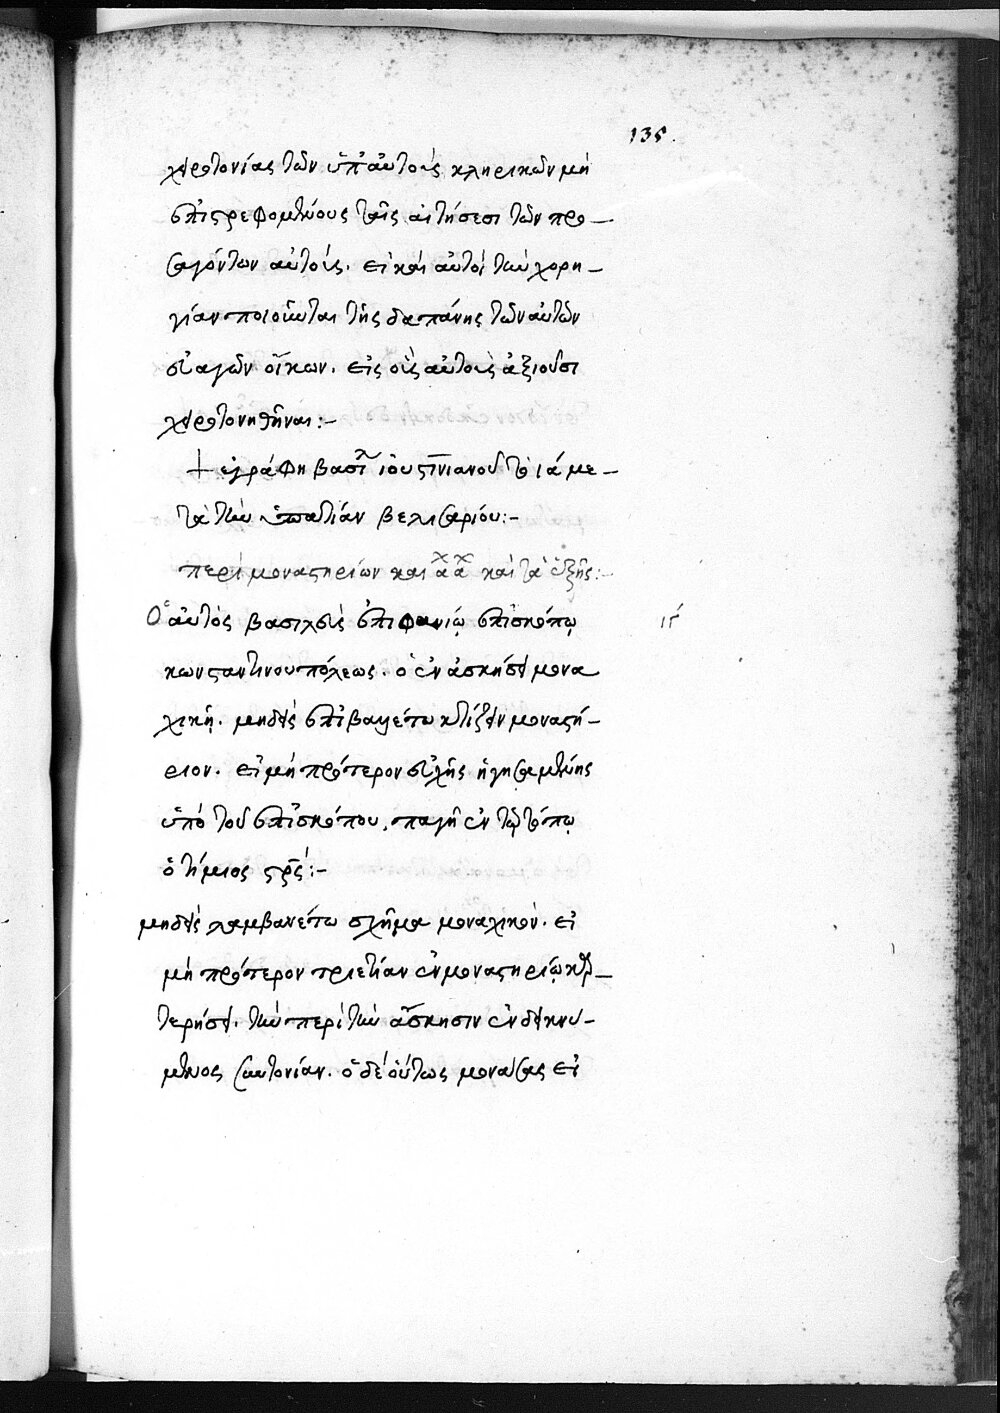 135.
χειροτονίας τῶν ὑπ' αὐτοὺς κληρικῶν μὴ
ἐπιστρεφομένους ταῖς αἰτήσεσι τῶν προ-
σαγόντων αὐτούς. εἰ καὶ αὐτοὶ τὴν χορη-
γίαν ποιοῦνται τῆς δαπάνης τῶν αὐτῶν
εὐαγῶν οἴκων. εἰς οὓς αὐτοὺς ἀξιοῦσι
χειροτονηθῆναι:-
+ ἐγράφη βασιλ ἰουστινιανοῦ τὸ ιά με-
τὰ τὴν ὑπατίαν βελισαρίου:-
περὶ μοναστηρίων καὶ καὶ τὰ ἑξῆς:-
Ὁ αὐτὸς βασιλεὺς ἐπιφανίῳ ἐπισκόπῳ
ιγ
κωνσταντινουπόλεως. ὁ ἐν ἀσκήσει μονα
χικῇ. μηδεὶς ἐπιβαλλέτω κτίζειν μοναστή-
ριον. εἰ μὴ πρότερον εὐχῆς ἡγησαμένης
ὑπὸ τοῦ ἐπισκόπου, παγῇ ἐν τῷ τόπῳ
ὁ τίμιος στρς:-
μηδεὶς λαμβανέτω σχῆμα μοναχικόν. εἰ
μὴ πρότερον τριετίαν ἐν μοναστηρίῳ καρ-
τερήσει. τὴν περὶ τὴν ἄσκησιν ἐνδεικνύ-
μενος εὐτονίαν. ὁ δὲ οὕτως μονάσας εἰ